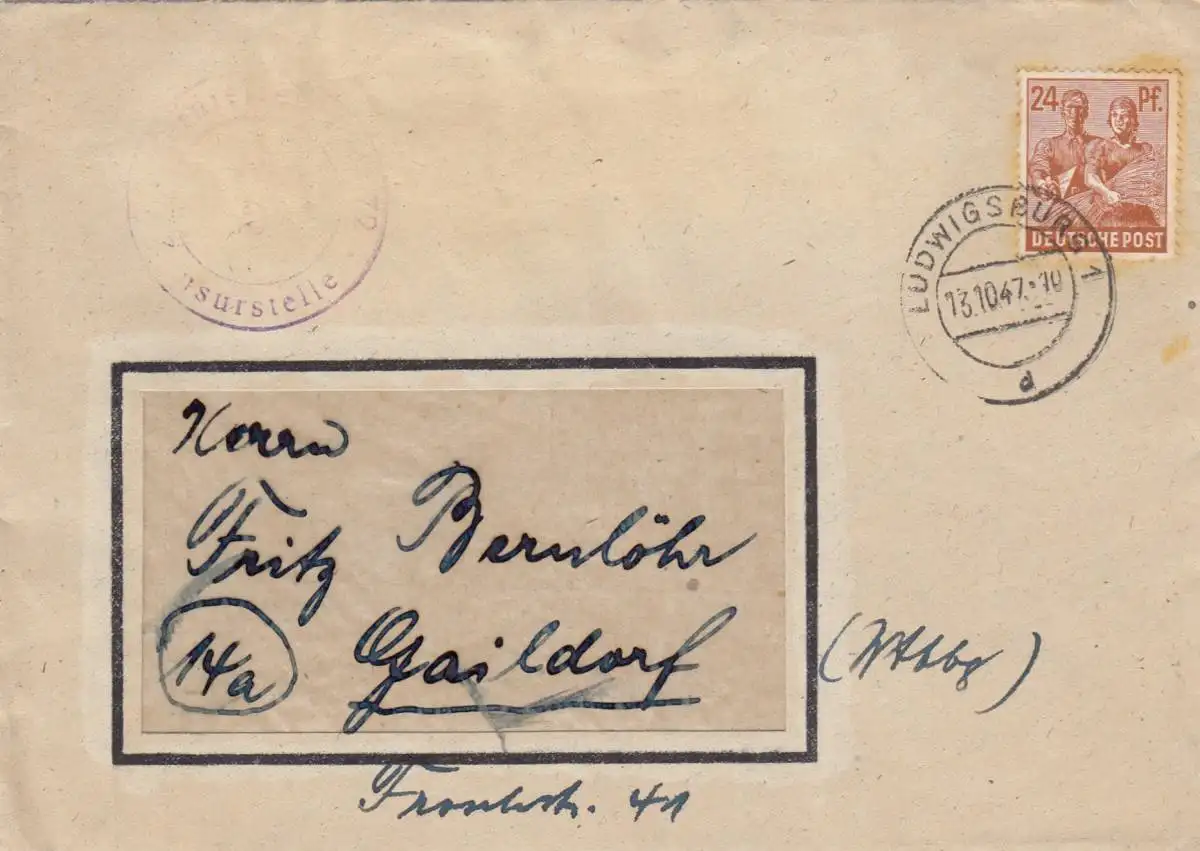 24 Pf.
DEUTSCHE POST
LUDWIGSBURG 1
13.10.47.-10
d
72
nsurstelle
Herrn
Fritz Bernlöhr
14a Gaildorf (Wttbg)